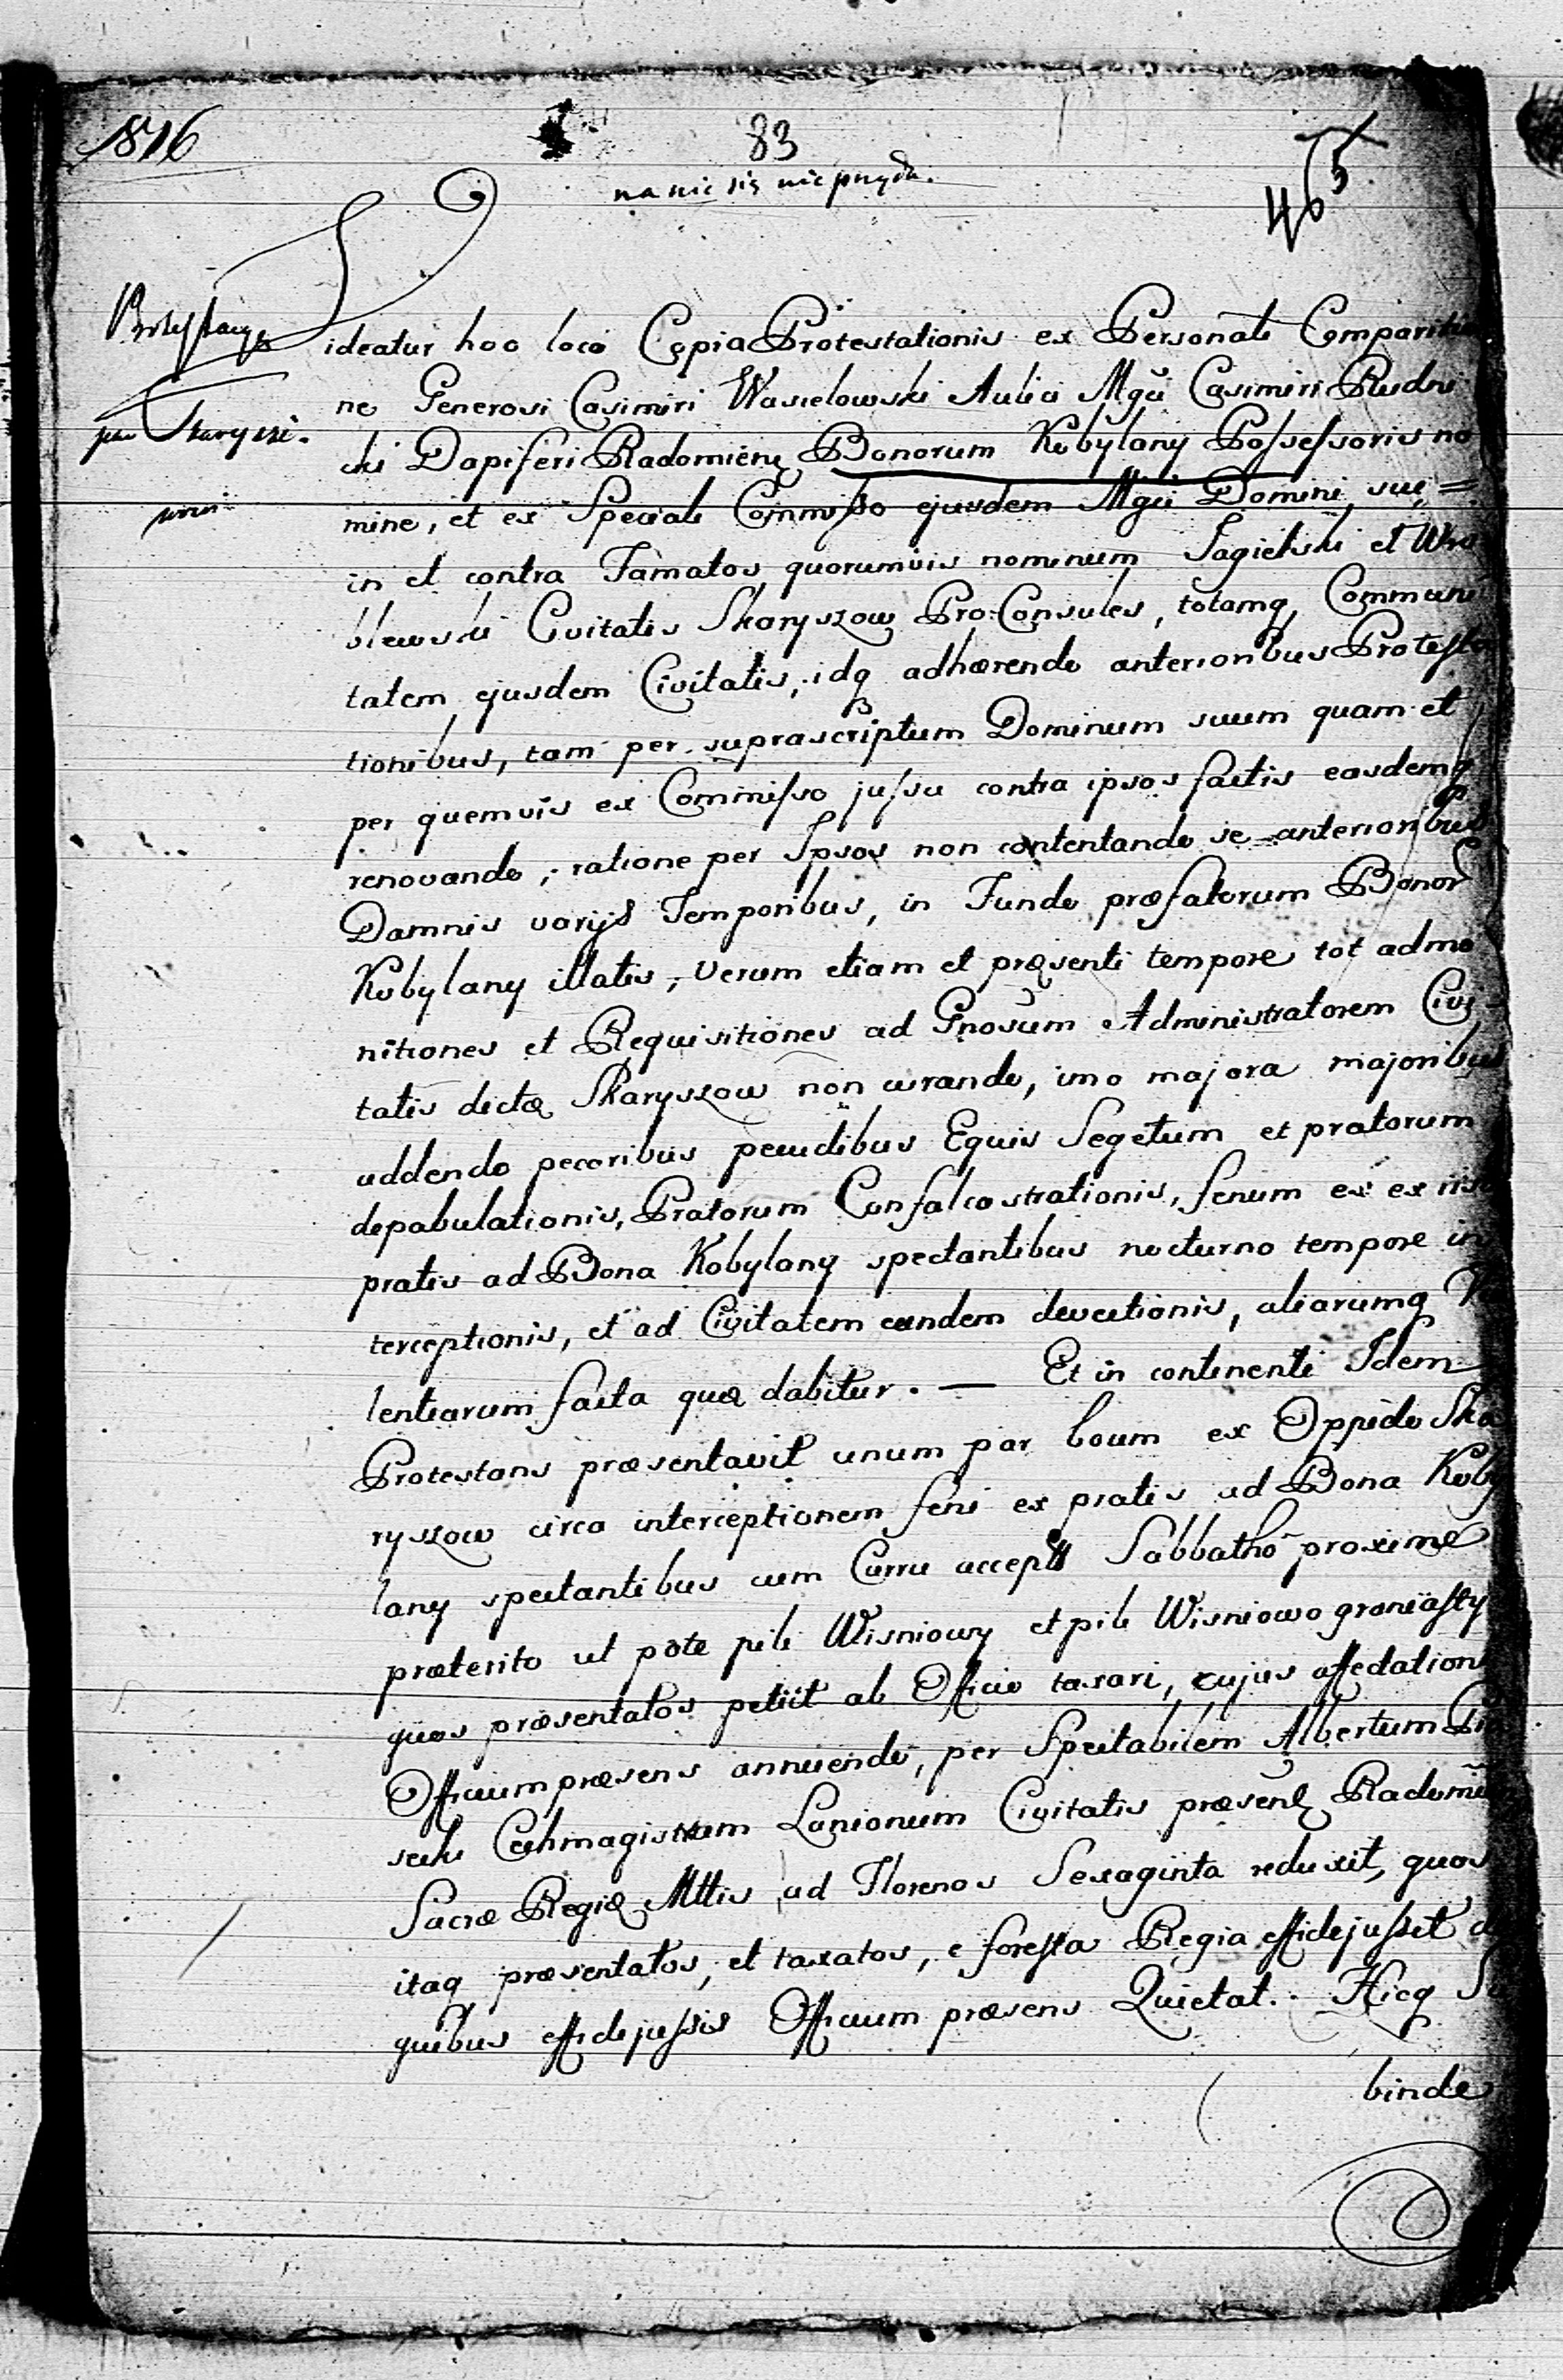 1816
83
465
na nic się nie przyda.
Protestacya
ideatur hoc loco Copia Protestationis ex Personali Comparitio
ne Generosi Casimiri Wasielowski Aulici Mgci Casimiri Rudni
cki Dapiferi Radomien̄ Bonorum Kobylany Possessoris no
mine, et ex Speciali Commisso ejusdem Mgci Domini sui =
in et contra Famatos quorumvis nominum Jagielski et Wro
blewski Civitatis Skaryszow Pro-Consules, totamq Communi
tatem ejusdem Civitatis, idq adhærendo anterioribus Protesta
tionibus, tam per suprascriptum Dominum suum quam et
per quemvis ex Commisso jussu contra ipsos factis easdemq
renovando; ratione per Ipsos non contentando se anterioribus
Damnis varijs Temporibus, in Fundo præfatorum Bonor
Kobylany illatis, verum etiam et præsenti tempore tot admo
nitiones et Requisitiones ad Gnosum Administratorem Civi
tatis dictæ Skaryszow non curando, imo majora majoribus
addendo pecoribus pecudibus Equis Segetum et pratorum
depabulationis, Pratorum Confalcastrationis, fenum ex ex iisd
pratis ad Bona Kobylany spectantibus nocturno tempore in
terceptionis, et ad Civitatem eandem devectionis, aliarumq Vio
lentiarum facta quæ dabitur. — Et in continenti Idem
Protestans præsentavit unum par boum ex Oppido Ska
ryszow circa interceptionem feni ex pratis ad Bona Koby
lany spectantibus cum Curru accept Sabbatho proxime
præterito ut pote pili Wisniowy et pili Wisniowo graniasty
quos præsentatos petiit ab Officio taxari, cujus affectationi
Officium præsens annuendo, per Spectabilem Albertum
Cechmagistrum Lanionum Civitatis præsen̄ Radomien
Sacræ Regiæ Mttis ad Florenos Sexaginta reduxit, quos
itaq præsentatos, et taxatos, e foresta Regia effidejussit de
quibus effidejussis Officium præsens Quietat. Hicq Su
binde